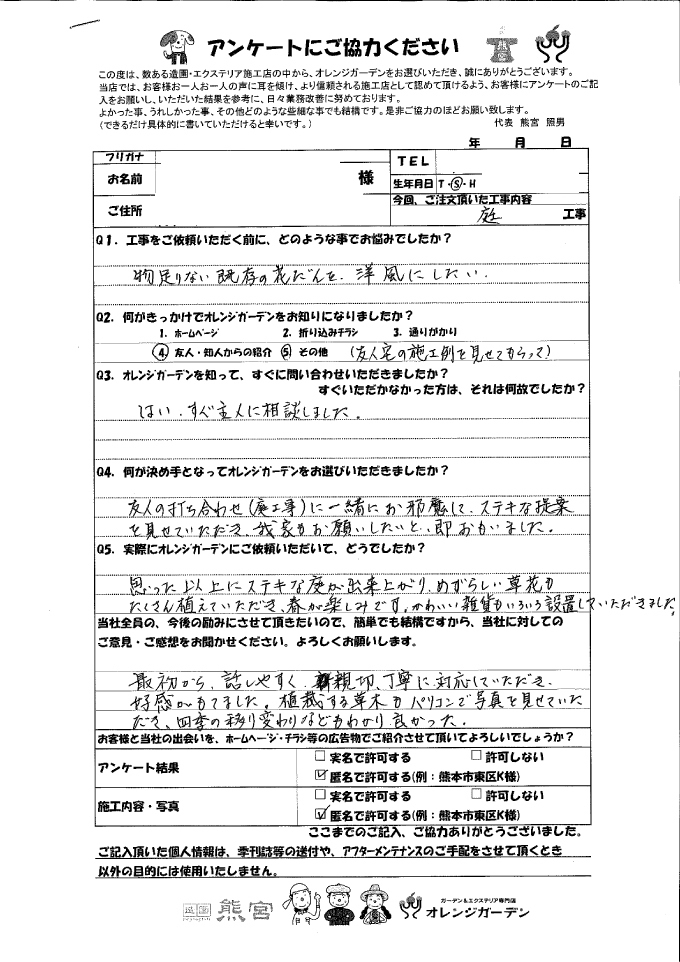 アンケートにご協力ください
この度は、数ある造園・エクステリア施工店の中から、オレンジガーデンをお選びいただき、誠にありがとうございます。
当店では、お客様お一人お一人の声に耳を傾け、より信頼される施工店として認めて頂けるよう、お客様にアンケートのご記
入をお願いし、いただいた結果を参考に、日々業務改善に努めております。
よかった事、うれしかった事、その他どのような些細な事でも結構です。是非ご協力のほどお願い致します。
(できるだけ具体的に書いていただけると幸いです。) 代表 熊宮 照男
年 月 日
フリガナ
お名前 様
TEL
生年月日 T・S・H
ご住所
今回、ご注文頂いた工事内容
庭 工事
Q1. 工事をご依頼いただく前に、どのような事でお悩みでしたか?
物足りない既存の花だんを、洋風にしたい.
Q2. 何がきっかけでオレンジガーデンをお知りになりましたか?
1. ホームページ 2. 折り込みチラシ 3. 通りがかり
④ 友人・知人からの紹介 ⑤ その他 (友人宅の施工例を見せてもらって)
Q3. オレンジガーデンを知って、すぐに問い合わせいただきましたか?
すぐいただかなかった方は、それは何故でしたか?
はい.すぐ主人に相談しました。
Q4. 何が決め手となってオレンジガーデンをお選びいただきましたか?
友人の打ち合わせ(庭工事)に一緒にお邪魔して、ステキな提案
を見せていただき、我家もお願いしたいと、即おもいました。
Q5. 実際にオレンジガーデンにご依頼いただいて、どうでしたか?
思った以上にステキな庭が出来上がり、めずらしい草花も
たくさん植えていただき、春が楽しみです。かわいい雑貨もいろいろ設置していただきました。
当社全員の、今後の励みにさせて頂きたいので、簡単でも結構ですから、当社に対しての
ご意見・ご感想をお聞かせください。よろしくお願いします。
最初から、話しやすく、親切、丁寧に対応していただき、
好感がもてました。植栽する草木もパソコンで写真を見せていた
だき、四季の移り変わりなどもわかり良かった.
お客様と当社の出会いを、ホームページ・チラシ等の広告物でご紹介させて頂いてよろしいでしょうか?
アンケート結果
□ 実名で許可する □ 許可しない
☑ 匿名で許可する(例:熊本市東区K様)
施工内容・写真
□ 実名で許可する □ 許可しない
☑ 匿名で許可する(例:熊本市東区K様)
ここまでのご記入、ご協力ありがとうございました。
ご記入頂いた個人情報は、季刊誌等の送付や、アフターメンテナンスのご手配をさせて頂くとき
以外の目的には使用いたしません。
造園 熊宮
ガーデン&エクステリア専門店
オレンジガーデン